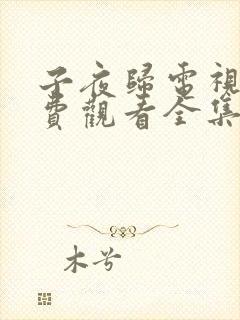 子夜歸電視
費觀看全集
木兮